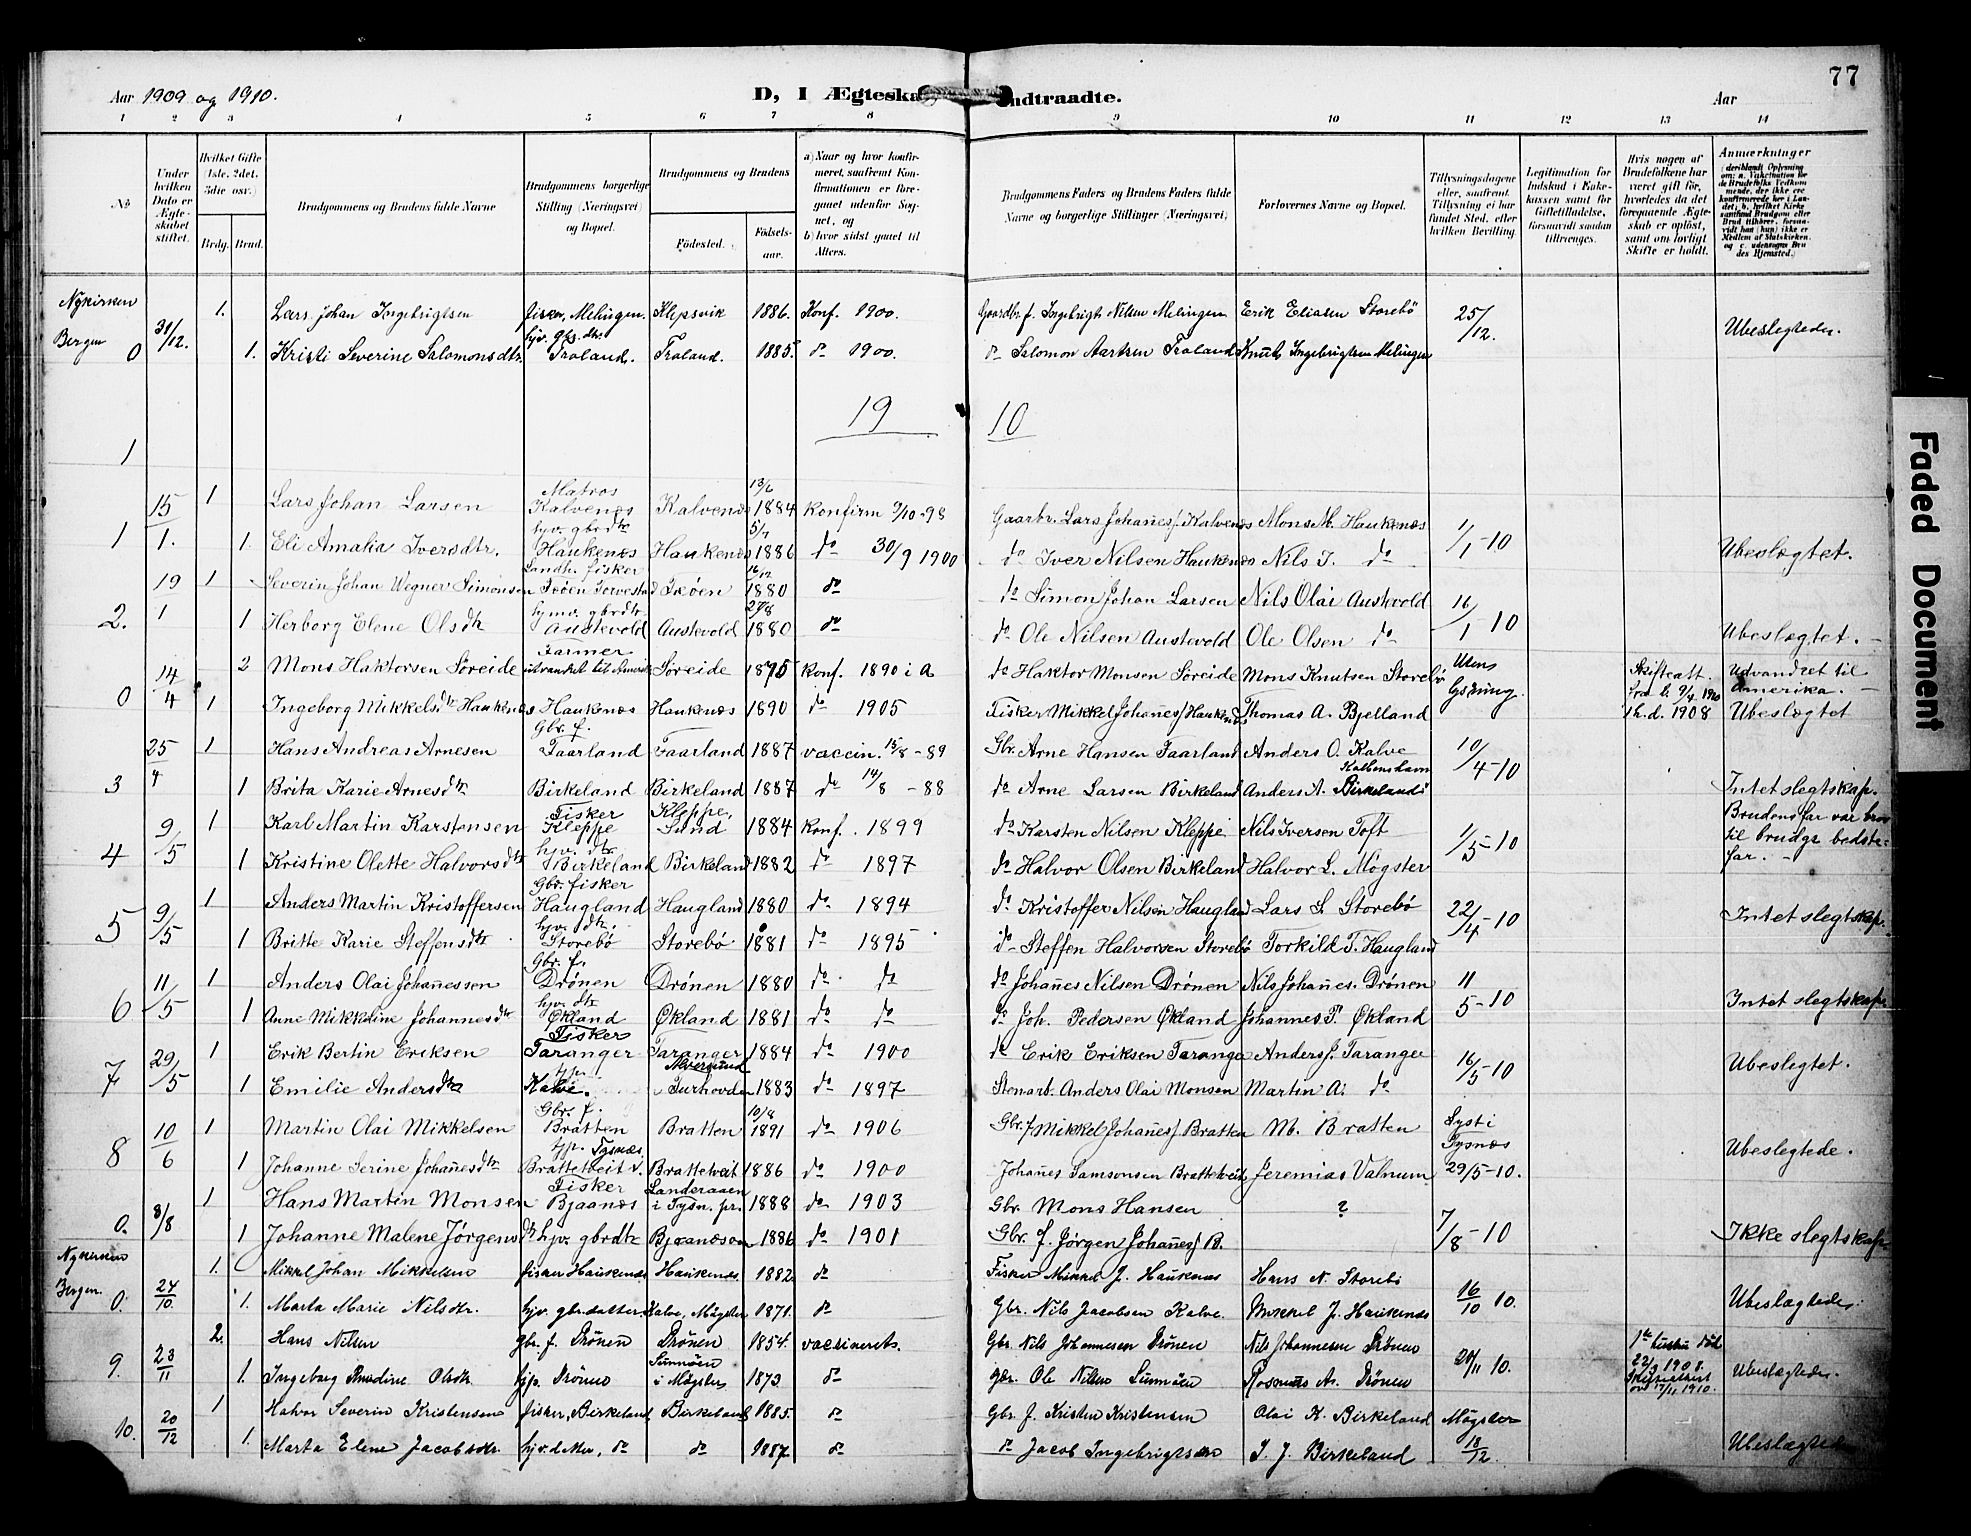 77
Aar 1909 og 1910.
D, I Ægteska
Indtraadte.
Aar
1 2 3 4 5 6 7 8 9 10 11 12 13 14
№
Under hvilken Dato er Ægteskabet stiftet.
Hvilket Gifte (1ste, 2det, 3die osv.)
Brdg. Brud.
Brudgommens og Brudens fulde Navne
Brudgommens borgerlige Stilling (Næringsvei) og Bopæl.
Brudgommens og Brudens
Födested.
Födsels-aar.
a) Naar og hvor konfirmeret, saafremt Konfirmationen er foregaaet udenfor Sognet, og
b) hvor sidst gaaet til Alters.
Brudgommens Faders og Brudens Faders fulde Navne og borgerlige Stillinger (Næringsvei)
Forlovernes Navne og Bopæl.
Tillysningsdagene eller, saafremt Tillysning ei har fundet Sted, efter hvilken Bevilling.
Legitimation for Indskud i Enkekassen samt for Giftetilladelse, forsaavidt saadan tiltrænges.
Hvis nogen af Brudefolkene har været gift før, hvorledes da det foregaaende Ægteskab er opløst, samt om lovligt Skifte er holdt.
Anmærkninger
Nykirken Bergen 0 31/12. 1. Lars Johan Ingebrigtsen fisker, Melingen. Klepsvik 1886. Konf. 1900. Gaardbr. f. Ingebrigt Nilsen Melingen Erik Eliasen Storebö 25/12. Ubeslegtede.
1. Kristi Severine Salomonsdtr. hjv. gbs. dtr. Troland. Troland. 1885. do 1900. do Salomon Aartsen Troland Knut Ingebrigtsen Melingen
19 10
1
1 15/1. 1 Lars Johan Larsen Matros Kalvenes Kalvenes 13/6 1884 Konfirm 9/10-98 Gaarbr. Lars Johanes/. Kalvenes Mons M. Haukenæs 1/1-10 Ubeslægtet.
1. Eli Amalia Iversdtr. hjv. gbrdtr Haukenæs Haukenæs 5/7 1886 do 30/9 1900 do Iver Nilsen Haukenæs Nils I. do
2. 19/1 1 Severin Johan Wegner Simonsen Landh. fisker 16/12 1880 do do Simon Johan Larsen Nils Olai Austevold 16/1-10 Ubeslægtet.
1 Herborg Elene Olsdtr hjmv. gbrdtr Austevold Austevold 27/8 1880 do do Ole Nilsen Austevold Ole Olsen do
0 14/4 2 Mons Haktorsen Söreide Farmer Söreide 1875 Konf. 1890 i A do Haktor Monsen Söreide Mons Knutsen Storebö Utens lysning. Skifteatt. 1908 Udvandret til Amerika. - Ubeslægtet
1 Ingeborg Mikkelsdtr Haukenæs Haukenæs Haukenæs 1890 do 1905 Fisker Mikkel Johanes/ Haukenæs Thomas A. Bjelland
3 25/4 1 Hans Andreas Arnesen Gbr. f. Faarland Faarland 1887 vaccin. 15/8-89 Gbr. Arne Hansen Faarland Anders O. Kalve 10/4-10 Intet slegtskap.
1 Brita Karie Arnesdtr Birkeland Birkeland 1887 do 14/8-88 do Arne Larsen Birkeland Anders A. Birkeland
4 9/5 1 Karl Martin Karstensen Fisker Kleppe Kleppe, Sund 1884 Konf. 1899 do Karsten Nilsen Kleppe Nils Iversen Toft 1/5-10 Brudens far var bror til brudgs bedstefar. -
1 Kristine Olette Halvorsdtr hjv. dtr Birkeland Birkeland 1882 do 1897 do Halvor Olsen Birkeland Halvor L. Møgster
5 9/5 1 Anders Martin Kristoffersen Gbr. fisker Haugland Haugland 1880 do 1894 do Kristoffer Nilsen Haugland Lars L. Storebö 22/4-10 Intet slegtskap.
1 Britte Karie Steffensdtr hjv. dtr. Storebö Storebö 1881 do 1895 do Steffen Halvorsen Storebö Torkild T. Haugland
6 11/5 1 Anders Olai Johanessen Gbr. f. Drönen Drönen 1880 do do do Johanes Nilsen Drönen Nils Johanes. Drönen 11 5-10 Intet slegtskap
1 Anne Mikkeline Johannesdtr hjv. dtr Økland Økland 1881 do do do Joh. Pedersen Økland Johannes P. Økland
7 29/5 1 Erik Bertin Eriksen Fisker Taranger Taranger 1884 do 1900 do Erik Eriksen Taranger Anders J. Taranger 16/5-10 Ubeslegtet.
1 Emilie Andersdtr Kalve. Alversund 1883 do 1897 Stenarb. Anders Olai Monsen Martin A. do
8 10/6 1 Martin Olai Mikkelsen Gbr. f. Bratten Bratten 10/8 1891 do 1906 Gbr. f Mikkel Johanes/ Bratten M. Bratten Lyst i Tysnæs 29/5-10. Ubeslegtede.
1 Johanne Serine Johanesdtr tjp. Tysnæs Brattetveit Brattetveit 1886 do 1900 Johanes Samsonsen Brattetveit Jeremias Valnum
0. 8/8 1 Hans Martin Monsen Fisker Bjaanæs Landeraaen i Tysn. pr. 1888 do 1903 Gbr. Mons Hansen ? 7/8-10 Ikke slegtskap
1 Johanne Malene Jørgensdtr hjv. gbrdtr Bjaanæsøen 1886 do 1901 Gbr. f. Jørgen Johanes/ B.
Nykirken Bergen. 0. 24/10. 1. Mikkel Johan Mikkelsen fisker Haukenæs Haukenæs 1882 do Fisker Mikkel J. Haukenæs Hans N. Storebö 16/10 10. Ubeslægtede.
1. Marta Marie Nilsdtr. hjv. gbr. datter Kalve, Mögster 1871. do Gbr. Nils Jacobsen Kalve. Mikkel J. Haukenæs
9. 23/11 2. Hans Nilsen gbr. f. Drönen Drönen 1854. vaccineret. Gbr. Nils Johannesen Drönen Nils Johannesen Drönen 20/11 10. 1ste hustru död 22/9 1908. Skifteattest 17/11 1910. Ubeslægtede.
1. Ingeborg Olsdtr. tjp. Drönen Sunnöen i Mögster 1873 do gbr. Ole Nilsen Sunnöen Rasmus A. Drönen
10. 20/12 1 Halvor Severin Kristensen fisker, Birkeland Birkeland 1885. do Gbr. f. Kristen Kristensen Olai K. Birkeland Mögster 18/12. Ubeslægtede
1. Marta Elene Jacobsdtr. hjv. datter, do do 1887. do do Jacob Ingebrigtsen I. J. Birkeland
Faded Document